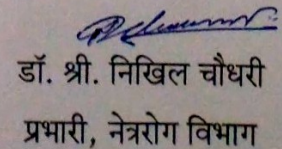 डॉ. श्री. निखिल चौधरी
प्रभारी, नेत्ररोग विभाग